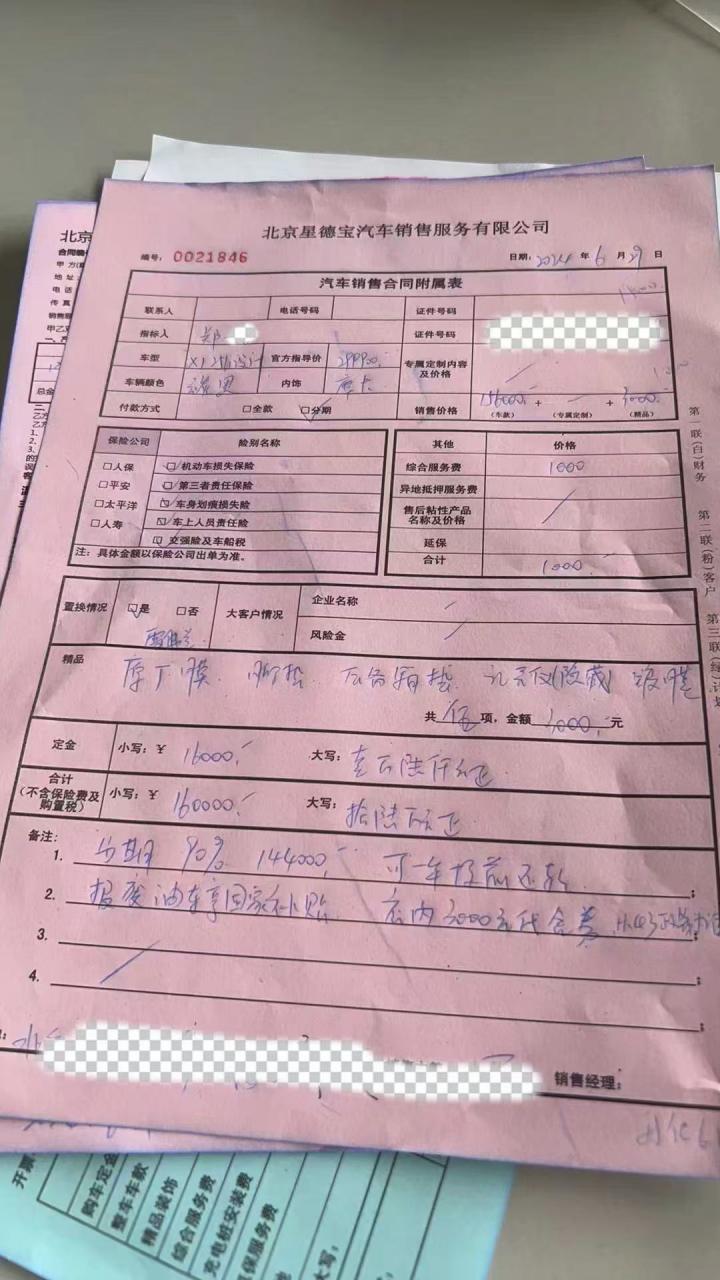 北京星德宝汽车销售服务有限公司
编号: 0021846 日期: 2024 年 6 月 29 日
汽车销售合同附属表
联系人 电话号码 证件号码
指标人 郑 证件号码
车型 X1 官方指导价 299900 专属定制内容及价格
车辆颜色 内饰 摩卡
付款方式 □全款 ☑分期 销售价格 156000 + — + 3000
(车款) (专属定制) (精品)
保险公司 险别名称 其他 价格
□人保 ☑机动车损失保险 综合服务费 1000
□平安 ☑第三者责任保险 异地抵押服务费
□太平洋 ☑车身划痕损失险 售后粘性产品名称及价格
□人寿 ☑车上人员责任险 延保
☑交强险及车船税 合计 1000
注:具体金额以保险公司出单为准。
置换情况 ☑是 □否 大客户情况 企业名称
风险金
精品 原厂膜、脚垫、后备箱垫、记录仪(隐藏)
共 伍 项,金额 3000 元
定金 小写:¥ 16000 大写: 壹万陆仟元正
合计(不含保险费及购置税) 小写:¥ 160000 大写: 拾陆万元正
备注:
1. 分期 90% 144000 可一年提前还款 ;
2. 报废油车享国家补贴 店内3000元
3. ;
4. ;
销售经理:
第一联(白)财务 第二联(粉)客户 第三联(绿)计划
北京
合同编
甲 方
地 址:
电 话
传 真
销售顾
甲乙双
总金
开票
购车定金
整车车款
精品装饰
综合服务费
充电桩安装费
延保服务费
大写: